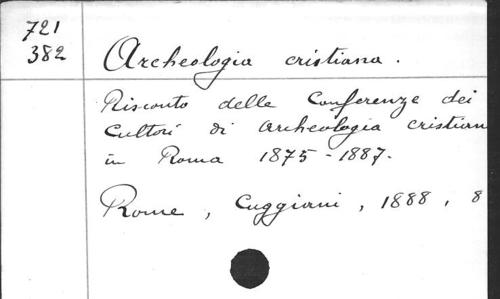 721
382
Archeologia cristiana.
Risconto delle Conferenze dei
Cultori di archeologia cristian
in Roma 1875-1887.
Rome, Cuggiani, 1888, 8